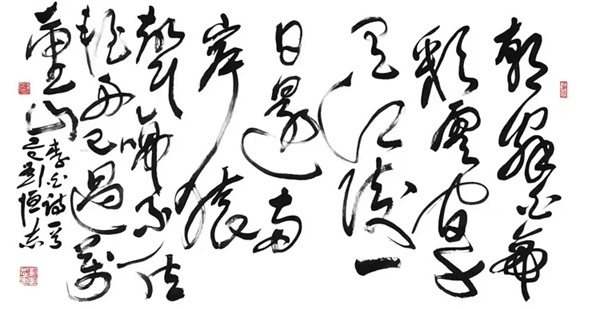 朝辭白帝
彩雲間千
里江陵一
日還兩
岸猿
聲啼不住
輕舟已過萬
重山
李白詩一首
劉恒志